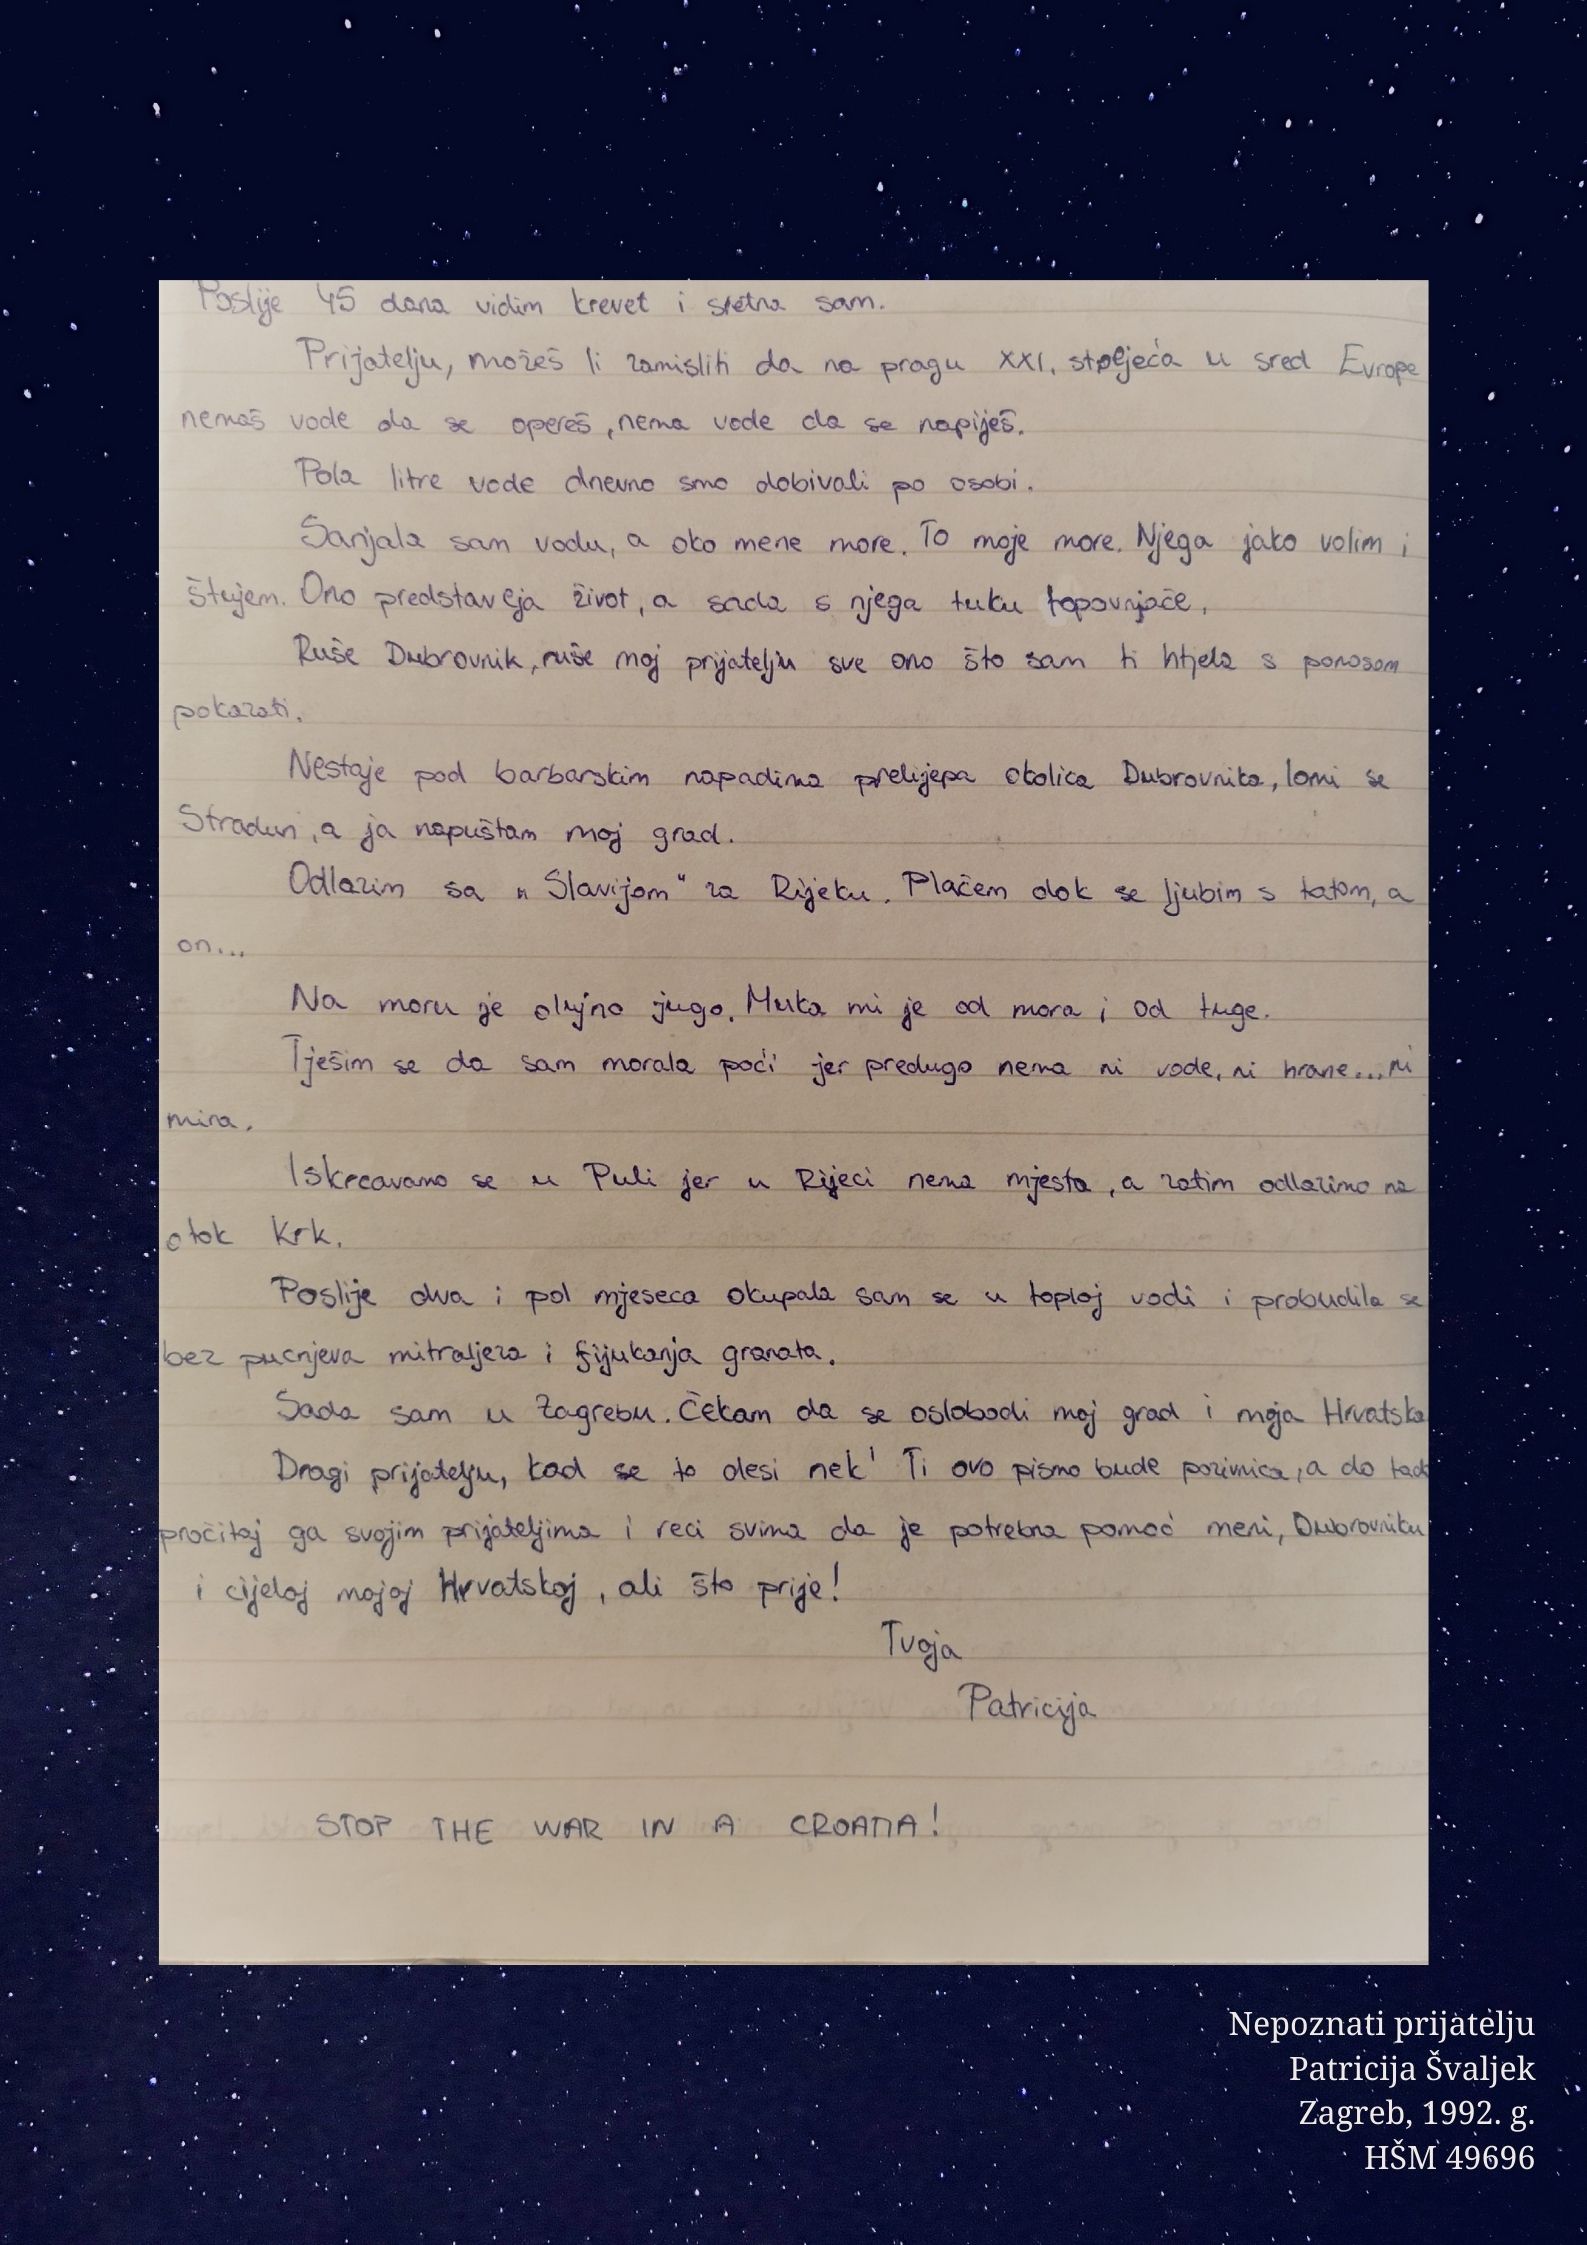 Poslije 45 dana vidim krevet i sretna sam.
Prijatelju, možeš li zamisliti da na pragu XXI. stoljeća u sred Evrope
nemaš vode da se opereš, nema vode da se napiješ.
Pola litre vode dnevno smo dobivali po osobi.
Sanjala sam vodu, a oko mene more. To moje more. Njega jako volim i
štujem. Ono predstavlja život, a sada s njega tuku topovnjače.
Ruše Dubrovnik, ruše moj prijatelju sve ono što sam ti htjela s ponosom
pokazati.
Nestaje pod barbarskim napadima prelijepa okolica Dubrovnika, lomi se
Stradun, a ja napuštam moj grad.
Odlazim sa „Slavijom" za Rijeku. Plačem dok se ljubim s tatom, a
on...
Na moru je olujno jugo. Muka mi je od mora i od tuge.
Tješim se da sam morala poći jer predugo nema ni vode, ni hrane... ni
mira.
Iskrcavamo se u Puli jer u Rijeci nema mjesta, a zatim odlazimo na
otok Krk.
Poslije dva i pol mjeseca okupala sam se u toploj vodi i probudila se
bez pucnjeva mitraljeza i fijukanja granata.
Sada sam u Zagrebu. Čekam da se oslobodi moj grad i moja Hrvatska
Dragi prijatelju, kad se to desi nek' Ti ovo pismo bude pozivnica, a do tad
pročitaj ga svojim prijateljima i reci svima da je potrebna pomoć meni, Dubrovniku
i cijeloj mojoj Hrvatskoj, ali što prije!
Tvoja
Patricija
STOP THE WAR IN A CROATIA!
Nepoznati prijatelju
Patricija Švaljek
Zagreb, 1992. g.
HŠM 49696